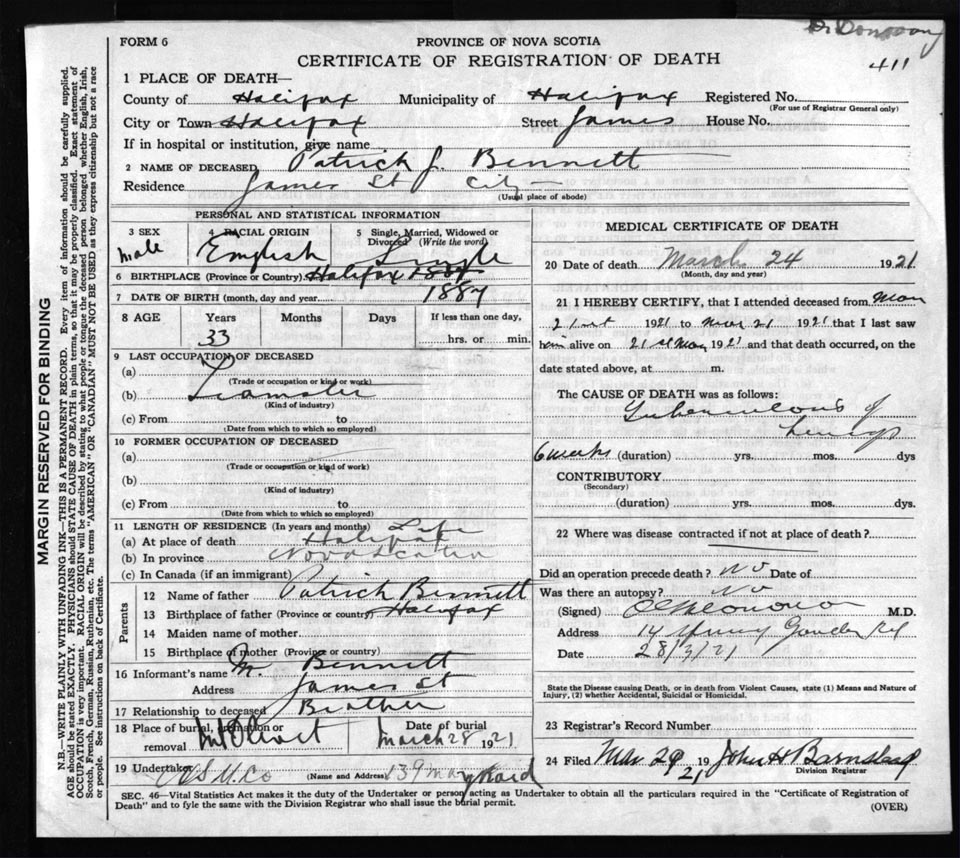 FORM 6
PROVINCE OF NOVA SCOTIA
CERTIFICATE OF REGISTRATION OF DEATH
411
1 PLACE OF DEATH—
County of Halifax Municipality of Halifax Registered No.
(For use of Registrar General only)
City or Town Halifax Street James House No.
If in hospital or institution, give name
2 NAME OF DECEASED Patrick J. Bennett
Residence James St City
(Usual place of abode)
PERSONAL AND STATISTICAL INFORMATION
3 SEX 4 RACIAL ORIGIN 5 Single, Married, Widowed or Divorced (Write the word)
Male English Single
6 BIRTHPLACE (Province or Country) Halifax
7 DATE OF BIRTH (month, day and year) 1887
8 AGE Years Months Days If less than one day,
33 hrs. or min.
9 LAST OCCUPATION OF DECEASED
(a)
(Trade or occupation or kind or work)
(b) Teamster
(Kind of industry)
(c) From to
(Date from which to which so employed)
10 FORMER OCCUPATION OF DECEASED
(a)
(Trade or occupation or kind of work)
(b)
(Kind of industry)
(c) From to
(Date from which to which so employed)
11 LENGTH OF RESIDENCE (In years and months) Life
(a) At place of death Halifax
(b) In province Nova Scotia
(c) In Canada (if an immigrant)
Parents
12 Name of father Patrick Bennett
13 Birthplace of father (Province or country) Halifax
14 Maiden name of mother
15 Birthplace of mother (Province or country)
16 Informant's name M. Bennett
Address James St
17 Relationship to deceased Brother
18 Place of burial, cremation or removal Mt Olivet Date of burial March 28 1921
19 Undertaker Co (Name and Address) 139 Maynard
MEDICAL CERTIFICATE OF DEATH
20 Date of death March 24 1921
(Month, day and year)
21 I HEREBY CERTIFY, that I attended deceased from Mar
21st 1921 to Mar 21 1921 that I last saw
him alive on 21st Mar 1921 and that death occurred, on the
date stated above, at m.
The CAUSE OF DEATH was as follows:
Tuberculous of
Lungs
6 weeks (duration) yrs. mos. dys
CONTRIBUTORY
(Secondary)
(duration) yrs. mos. dys.
22 Where was disease contracted if not at place of death?
Did an operation precede death? No Date of
Was there an autopsy? No
(Signed) M.D.
Address 14
Date 28/3/21
State the Disease causing Death, or in death from Violent Causes, state (1) Means and Nature of
Injury, (2) whether Accidental, Suicidal or Homicidal.
23 Registrar's Record Number
24 Filed Mar. 29 1921 John H Barnstead
Division Registrar
SEC. 46—Vital Statistics Act makes it the duty of the Undertaker or person acting as Undertaker to obtain all the particulars required in the "Certificate of Registration of
Death" and to fyle the same with the Division Registrar who shall issue the burial permit.
(OVER)
MARGIN RESERVED FOR BINDING
N.B.—WRITE PLAINLY WITH UNFADING INK—THIS IS A PERMANENT RECORD. Every item of information should be carefully supplied.
AGE should be stated EXACTLY. PHYSICIANS should STATE CAUSE OF DEATH in plain terms, so that it may be properly classified. Exact statement of
OCCUPATION is very important. RACIAL ORIGIN will be described by stating to what people or tongue the deceased person belonged whether English, Irish,
Scotch, French, German, Russian, Ruthenian, etc. The terms "AMERICAN" OR "CANADIAN" MUST NOT BE USED as they express citizenship but not a race
or people. See instructions on back of Certificate.